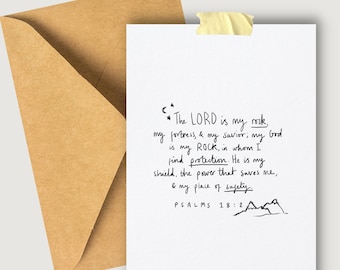 The LORD is my rock,
my fortress, & my savior; my God
is my ROCK, in whom I
find protection. He is my
shield, the power that saves me,
& my place of safety.
PSALMS 18:2